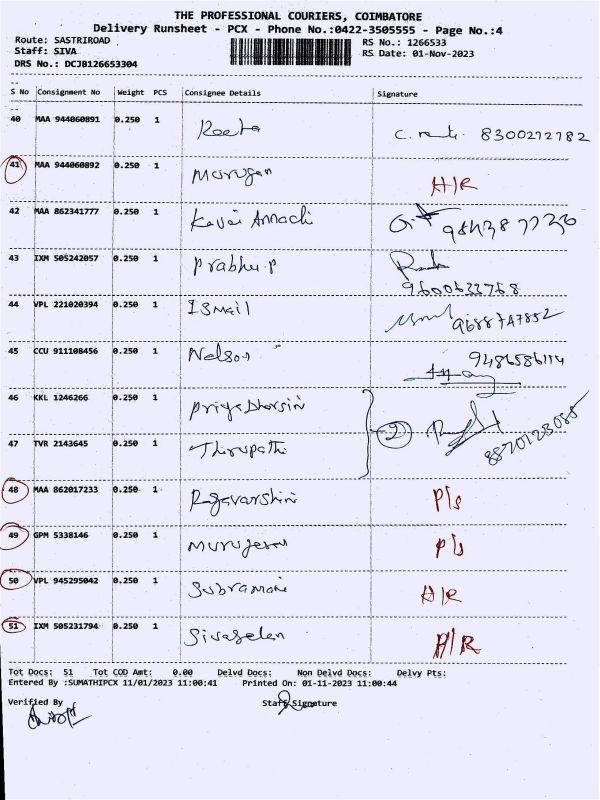 THE PROFESSIONAL COURIERS, COIMBATORE
Delivery Runsheet - PCX - Phone No.:0422-3505555 - Page No.:4
Route: SASTRIROAD RS No.: 1266533
Staff: SIVA RS Date: 01-Nov-2023
DRS No.: DCJB126653304
S No Consignment No Weight PCS Consignee Details Signature
40 MAA 944060891 0.250 1 Reeta 8300272782
41 MAA 944060892 0.250 1 Murugan H/R
42 MAA 862341777 0.250 1 Kavai Annachi
43 IXM 505242057 0.250 1 Prabhu.P
9600633768
44 VPL 221020394 0.250 1 ISmail 9688747852
45 CCU 911108456 0.250 1 Nelson 9486586114
46 KKL 1246266 0.250 1 Priya Dharsini
2 8870123085
47 TVR 2143645 0.250 1 Thirupathi
48 MAA 862017233 0.250 1 Ragavarshini P/s
49 GPM 5338146 0.250 1 Murugesan P/s
50 VPL 945295042 0.250 1 Subramani H/R
51 IXM 505231794 0.250 1 Sivaselan H/R
Tot Docs: 51 Tot COD Amt: 0.00 Delvd Docs: Non Delvd Docs: Delvy Pts:
Entered By :SUMATHIPCX 11/01/2023 11:00:41 Printed On: 01-11-2023 11:00:44
Verified By Staff Signature